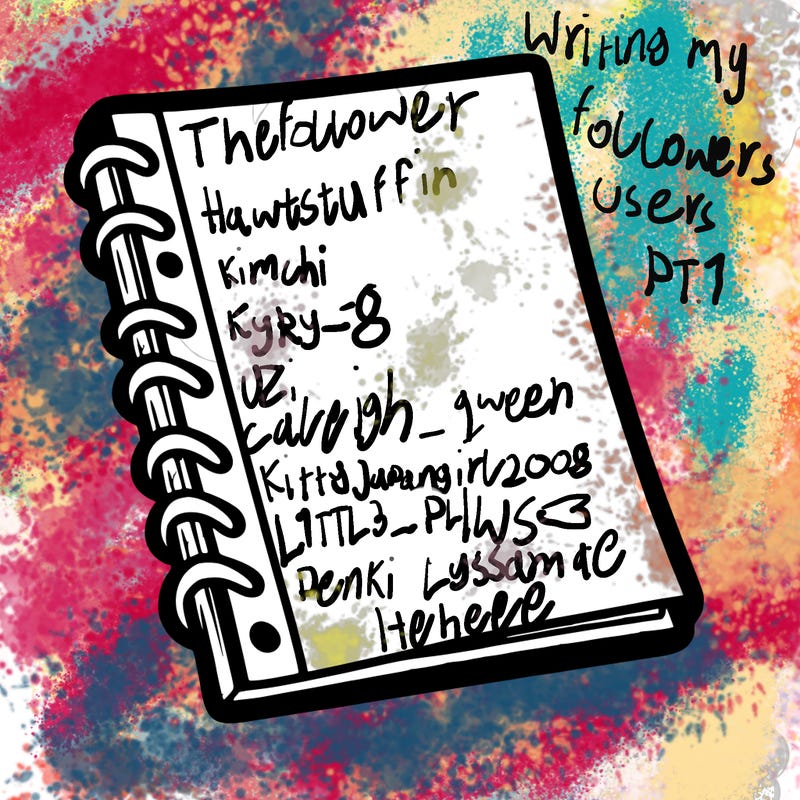 Writing my
followers
users
PT.1
Thefollower
Hawtstuffin
Kimchi
KyRy_=8
UZi
caleigh_qween
L1TTL3_P4WS<3
Denki Lyssamae
Heheee